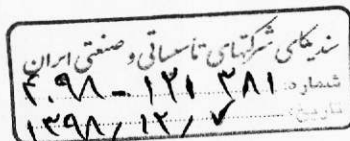 سندیکای شرکتهای تاسیساتی و صنعتی ایران
شماره: ۴۰۹۸ - ۱۲۱ ۳۸۱
تاریخ: ۱۳۹۸/۱۲/۷